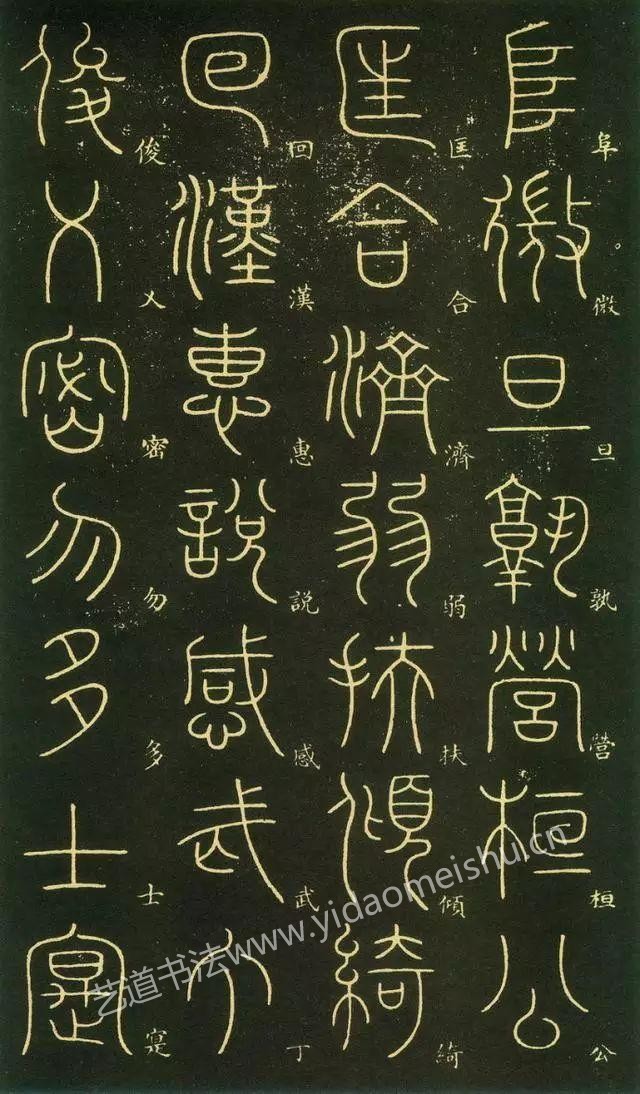 阜微旦孰營桓公
匡合濟弱扶傾綺
回漢惠說感武丁
俊乂密勿多士寔
艺道书法www.yidaomeishu.cn